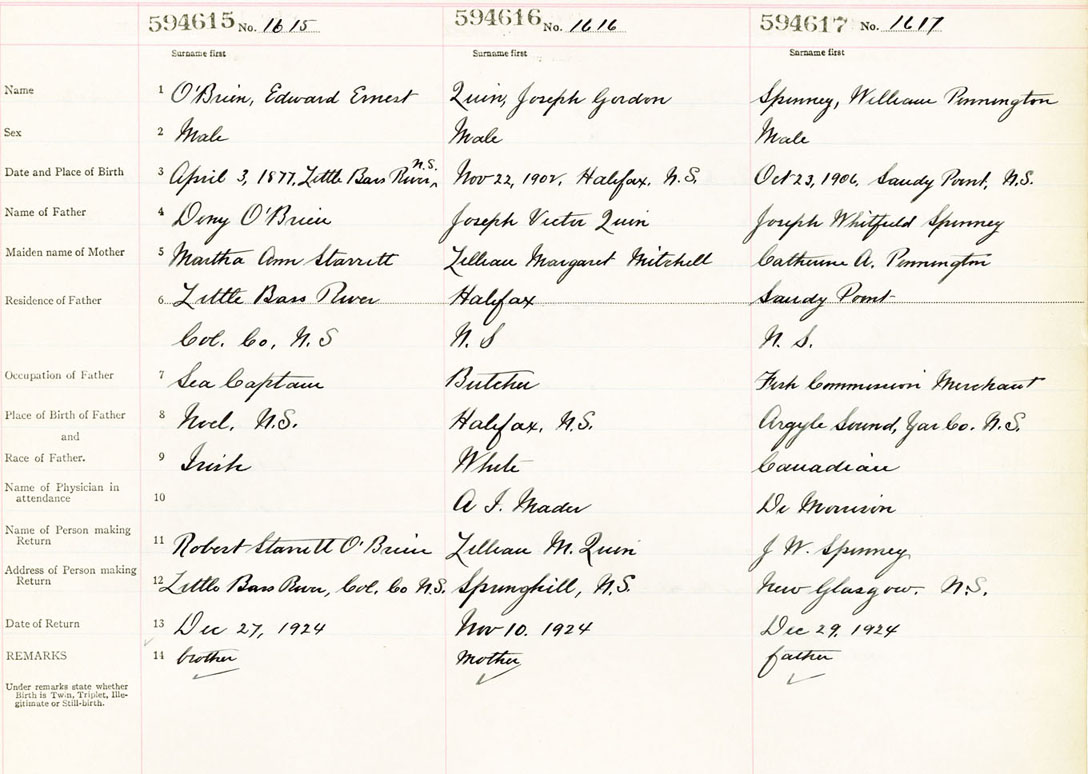 594615 No. 1615 594616 No. 1616 594617 No. 1617
Surname first Surname first Surname first
Name 1 O'Brien, Edward Ernest Quin, Joseph Gordon Spinney, William Pennington
Sex 2 Male Male Male
N.S.
Date and Place of Birth 3 April 3, 1877, Little Bass River, Nov 22, 1902, Halifax, N.S. Oct 23, 1906, Sandy Point, N.S.
Name of Father 4 O'Brien Joseph Victor Quin Joseph Whitfield Spinney
Maiden name of Mother 5 Martha Ann Starrett Lillian Margaret Mitchell Catherine A. Pennington
Residence of Father 6 Little Bass River Halifax Sandy Point
Col. Co, N.S N.S N.S.
Occupation of Father 7 Sea Captain Butcher Fish Commission Merchant
Place of Birth of Father 8 Noel, N.S. Halifax, N.S. Argyle Sound, Yar Co. N.S.
and
Race of Father. 9 Irish White Canadian
Name of Physician in
attendance 10 A I. Mader Dr Morrison
Name of Person making
Return 11 Robert Starrett O'Brien Lillian M. Quin J W. Spinney
Address of Person making
Return 12 Little Bass River, Col. Co N.S. Springhill, N.S. New Glasgow. N.S.
Date of Return 13 Dec 27, 1924 Nov 10. 1924 Dec 29, 1924
REMARKS 14 brother mother father
Under remarks state whether
Birth is Twin, Triplet, Ille-
gitimate or Still-birth.